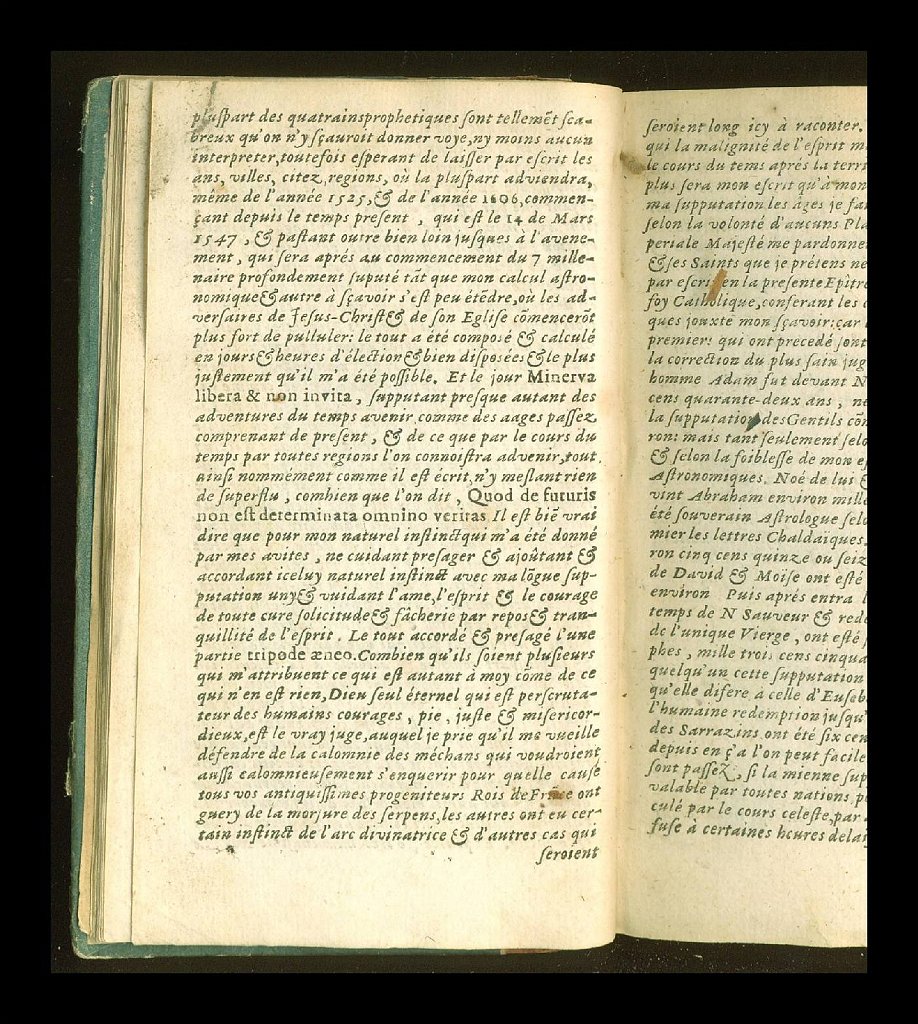 pluſpart des quatrainsprophetiques ſont tellemēt ſca-
breux qu'on n'y ſçauroit donner voye,ny moins aucun
interpreter,toutefois eſperant de laiſſer par eſcrit les
ans, villes, citez, regions, où la pluſpart adviendra,
méme de l'année 1525,& de l'année 1606,commen-
çant depuis le temps preſent , qui eſt le 14 de Mars
1547 ,& paſſant outre bien loin juſques à l'avene-
ment , qui ſera aprés au commencement du 7 mille-
naire profondement ſuputé tāt que mon calcul aſtro-
nomique&autre à ſçavoir s'eſt peu étēdre,où les ad-
verſaires de Jeſus-Chriſt& de ſon Egliſe cōmencerōt
plus fort de pulluler: le tout a été compoſé & calculé
en jours&heures d'élection&bien diſpoſées&le plus
juſtement qu'il m'a été poſſible. Et le jour Minerva
libera & non invita, ſupputant preſque autant des
adventures du temps avenir comme des aages paſſez
comprenant de preſent , & de ce que par le cours du
temps par toutes regions l'on connoiſtra advenir,tout
ainſi nommément comme il est écrit,n'y meſlant rien
de ſuperflu , combien que l'on dit , Quod de futuris
non eſt determinata omnino veritas Il eſt biē vrai
dire que pour mon naturel inſtinctqui m'a été donné
par mes avites , ne cuidant preſager & ajoûtant &
accordant iceluy naturel inſtinct avec ma lōgue ſup-
putation uny& vuidant l'ame,l'eſprit & le courage
de toute cure ſolicitude& fâcherie par repos& tran-
quillité de l'eſprit . Le tout accordé & preſagé l'une
partie tripode æneo.Combien qu'ils ſoient pluſieurs
qui m'attribuent ce qui est autant à moy cōme de ce
qui n'en est rien,Dieu ſeul éternel qui est perſcruta-
teur des humains courages , pie , juſte & miſericor-
dieux,eſt le vray juge,auquel je prie qu'il me vueille
défendre de la calomnie des méchans qui voudroient
auſſi calomnieuſement s'enquerir pour quelle cauſe
tous vos antiquiſſimes progeniteurs Rois de France ont
guery de la morſure des ſerpens,les autres ont eu cer-
tain inſtinct de l'arc divinatrice & d'autres cas qui
ſeroient
ſeroient long icy à raconter.
qui la malignité de l'eſprit m
le cours du tems aprés la terr
plus ſera mon eſcrit qu'à mon
ma ſupputation les âges je fai
ſelon la volonté d'aucuns Pla
periale Majeſté me pardonne
&ſes Saints que je prétens ne
par eſcrit en la preſente Epître
foy Catholique,conferant les c
ques jouxte mon ſçavoir:car l
premiers qui ont precedé ſont
la correction du plus ſain jug
homme Adam fut devant N
cens quarante-deux ans , ne
la ſupputation desGentils cōm
ron: mais tant ſeulement ſelo
& ſelon la foibleſſe de mon eſ
Aſtronomiques. Noé de lui &
vint Abraham environ mille
été ſouverain Aſtrologue ſelo
mier les lettres Chaldaïques,
ron cinq cens quinze ou ſeiz
de David & Moïſe ont eſté
environ Puis aprés entra l
temps de N Sauveur & rede
de l'unique Vierge , ont eſté
phes , mille trois cens cinqua
quelqu'un cette ſupputation
qu'elle difere à celle d'Euſeb
l'humaine redemption juſqu'
des Sarrazins ont été ſix cen
depuis en ç'a l'on peut facile
ſont paſſez, ſi la mienne ſup
valable par toutes nations p
culé par le cours celeſte,par
fuſe à certaines heures delai